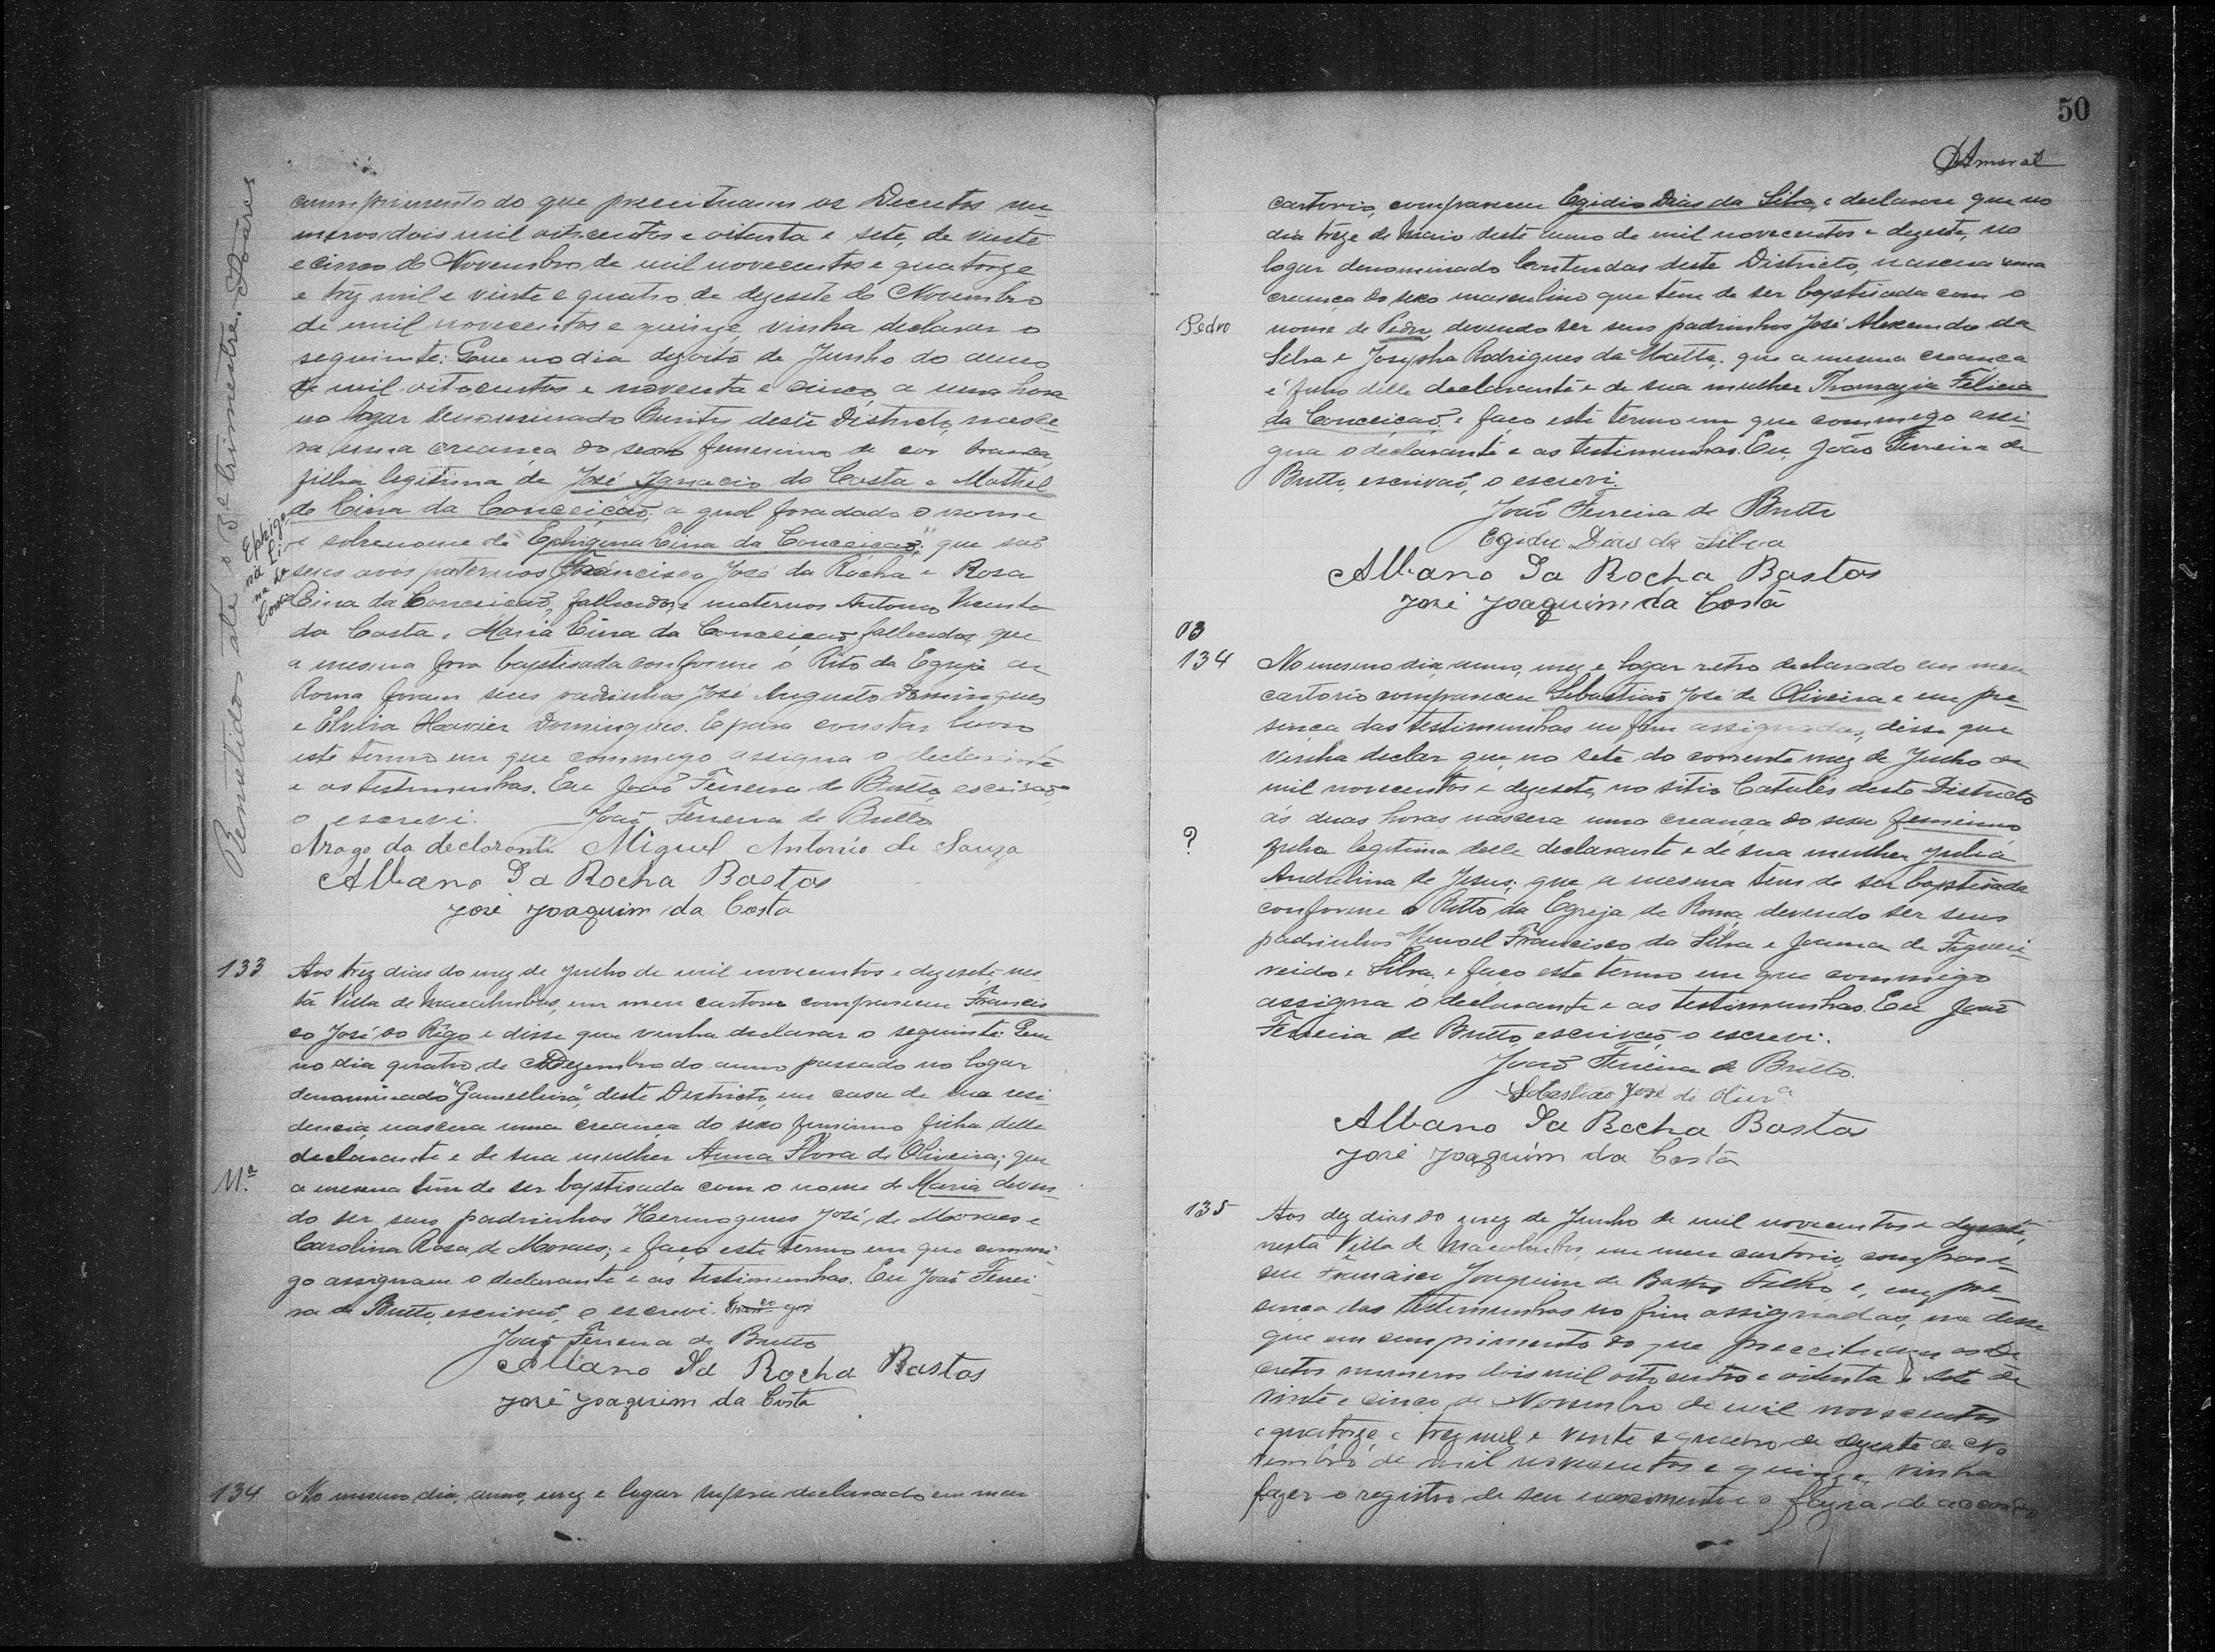 cumprimento do que preceituam os Decretos nu
meros dois mil oitocentos e oitenta e sete, de vinte
e cinco de Novembro de mil novecentos e quatorze
e trez mil e vinte e quatro de dezesete de Novembro
de mil novecentos e quinze, vinha declarar o
seguinte: Que no dia dezoito de Junho do anno
de mil oitocentos e noventa e cinco, a uma hora
no logar denominado Burity deste Districto, nasce
ra uma creança do sexo femenino de cor branca,
filha legitima de José Ignacio da Costa e Mathil
de Lina da Conceição, a qual fora dado o nome
e sobrenome de "Ephigenia Lina da Conceição", que são
seus avos paternos Francisco José da Rocha e Rosa
Lina da Conceição, fallecidos, e maternos Antonio Vicente
da Costa e Maria Lina da Conceição fallecidos, que
a mesma fora baptisada conforme o Rito da Egreja de
Roma foram seus padrinhos José Augusto Domingues
e Elvira Xavier Domingues. E para constar lavro
este termo em que commego assigna o declarante
e as testimunhas. Eu João Ferreira de Britto, escrivão,
o escrevi. João Ferreira de Britto
Arogo da declarante Miguel Antonio de Souza
Albano Da Rocha Bastos
José Joaquim da Costa
Remetidos até o 3º trimestre.
133 Aos trez dias do mez de Junho de mil novecentos e dezesete, nes
ta Villa de Macahubas, em meu cartorio compareceu Francis
co José do Rego e disse que vinha declarar o seguinte: Que
no dia quatro de Dezembro do anno passado no logar
denominado "Gamelleira", deste Districto, em casa de sua resi
dencia, nascera uma creança do sexo feminino filha delle
declarante e de sua mulher Anna Flora de Oliveira; que
Mª a mesma tem de ser baptisada com o nome de Maria deven
do ser seus padrinhos Hermogenes José de Moraes e
Carolina Rosa de Moraes; e faço este termo em que commi
go assignam o declarante e as testimunhas. Eu João Ferrei
ra de Britto, escrivão, o escrevi.
João Ferreira de Britto
Albano Da Rocha Bastos
José Joaquim da Costa
134 No mesmo dia, anno, mez e lugar supra declarado em meu
50
Amaral
cartorio, compareceu Egidio Dias da Silva, e declarou que no
dia treze de Maio deste anno de mil novecentos e dezesete, no
logar denominado Contendas deste Districto, nascera uma
creança do sexo masculino que tem de ser baptisada com o
Pedro nome de Pedro, devendo ser seus padrinhos José Alexandre da
Silva e Josepha Rodrigues da Matta; que a mesma creança
é filho delle declarante e de sua mulher Thomazia Felicia
da Conceição, e faço este termo em que commego assi
gna o declarante e as testimunhas. Eu, João Ferreira de
Britto, escrivão, o escrevi.
João Ferreira de Britto
Egidio Dias da Silva
Albano Da Rocha Bastos
José Joaquim da Costa
134 No mesmo dia, anno, mez e logar retro declarado em meu
cartorio compareceu Sebastião José de Oliveira e em pre
sença das testimunhas no fim assignadas, disse que
vinha declar que, no sete do corrente mez de Junho de
mil novecentos e dezesete, no sitio Catulés deste Districto
ás duas horas nascera uma creança do sexo femenino
? filha legitima delle declarante e de sua mulher Julia
Andrelina de Jesus; que a mesma tem de ser baptisada
conforme o Ritto da Egreja de Roma, devendo ser seus
padrinhos Manoel Francisco da Silva e Joanna de Figuei
reido e Silva, e faço este termo em que commigo
assigna o declarante e as testimunhas. Eu João
Ferreira de Britto, escrivão, o escrevi.
João Ferreira de Britto.
Sebastião José de Olivª
Albano Da Rocha Bastos
José Joaquim da Costa
135 Aos dez dias do mez de Junho de mil novecentos e dezesete,
nesta Villa de Macahubas, em meu cartorio, compare
ceu Francisco Joaquim de Bastos Filho e, em pre
sença das testimunhas no fim assignadas, me disse
que em cumprimento do que preceituam os De
cretos numeros dois mil oitocentos e oitenta e sete de
vinte e cinco de Novembro de mil novecentos
e quatorze, e trez mil e vinte e quatro de dezesete de No
vembro de mil novecentos e quinze, vinha
fazer o registro de seu nascimento e o fazia de accordo